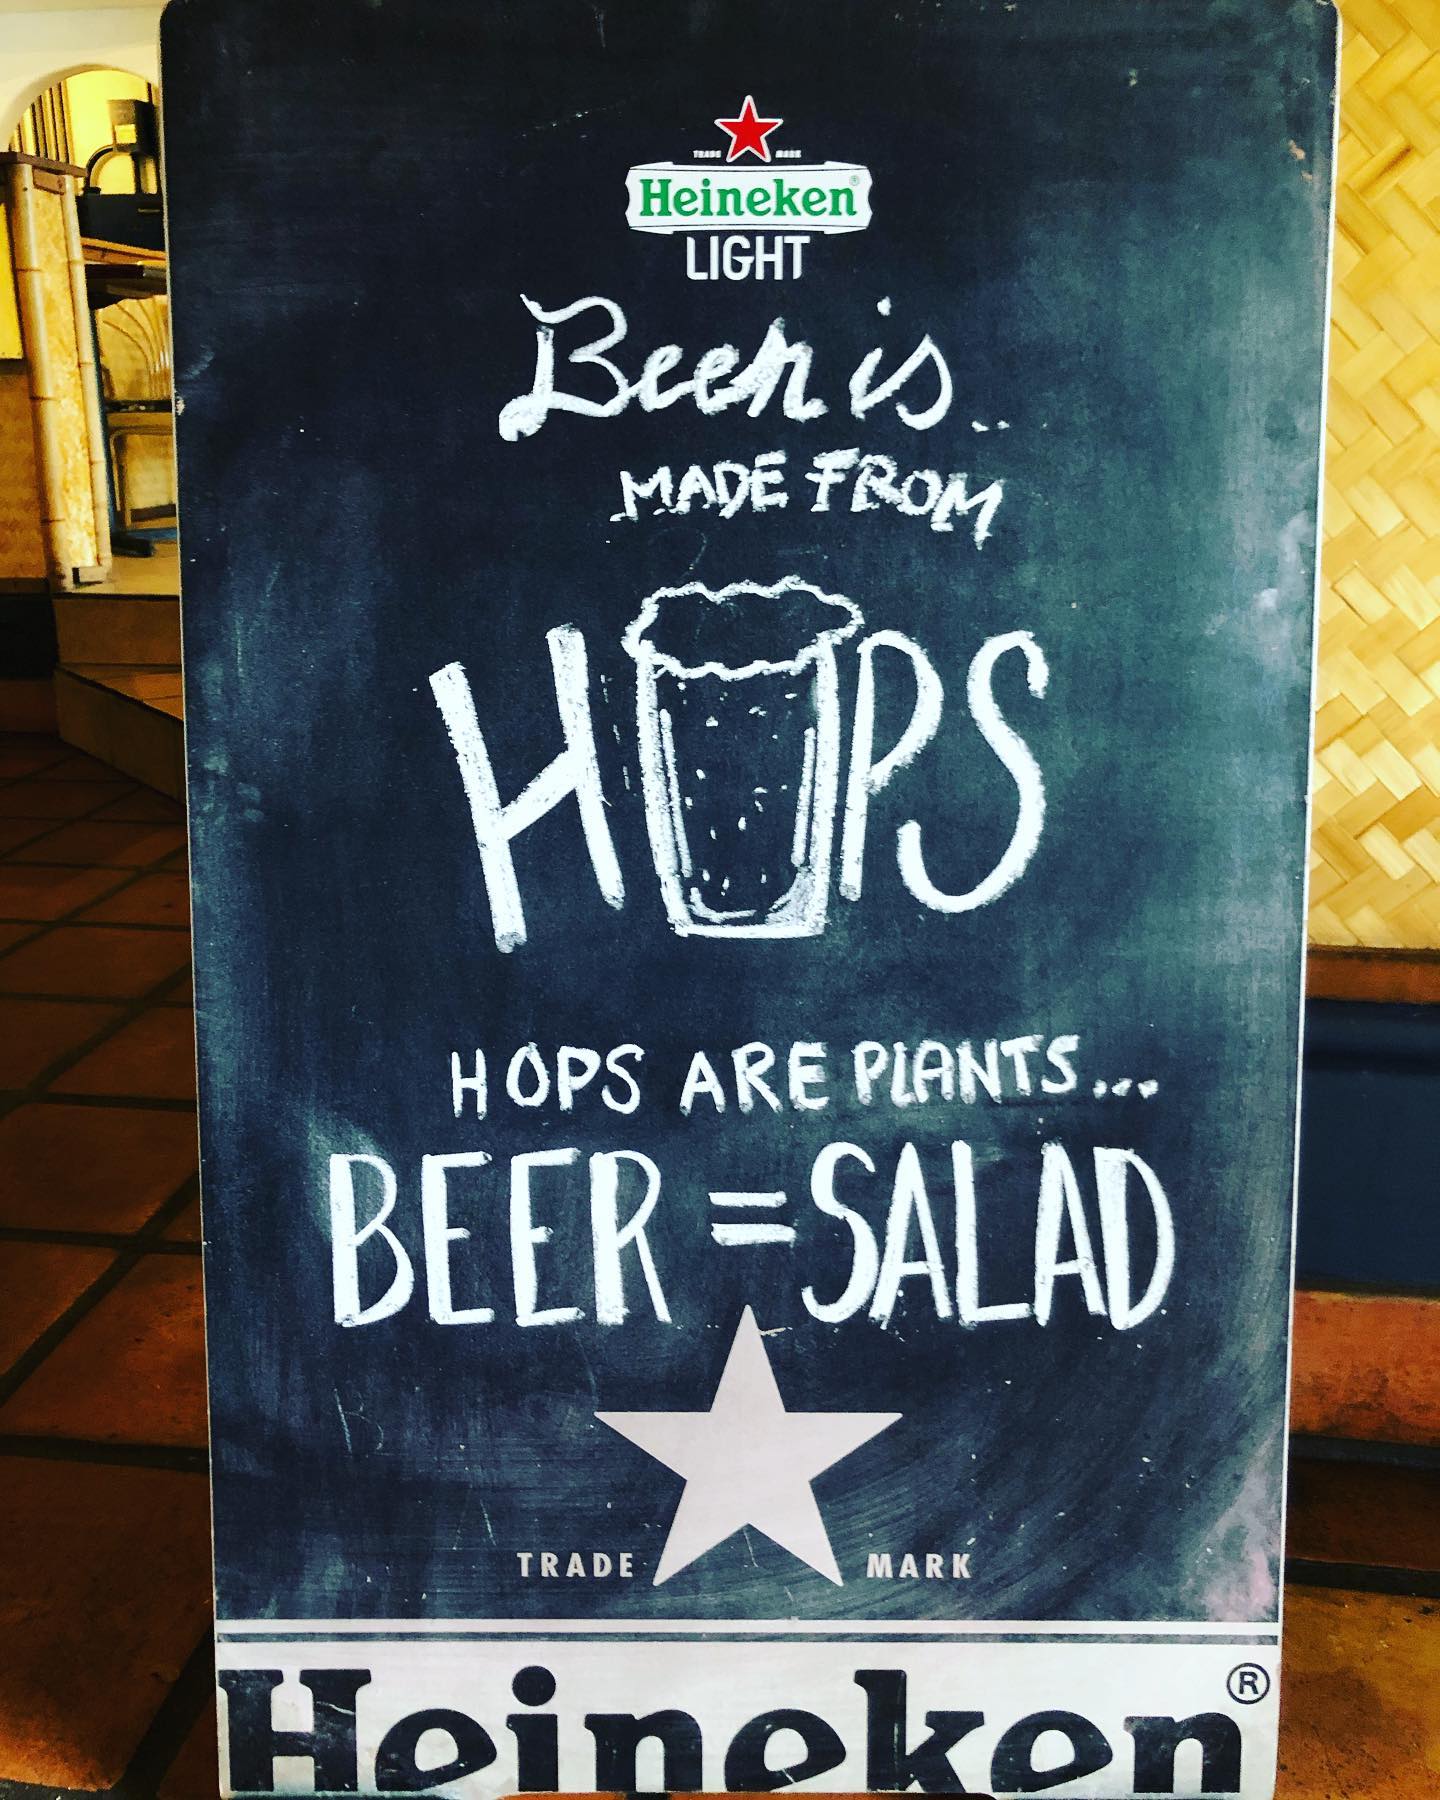 TRADE MARK
Heineken®
LIGHT
Beer is..
MADE FROM
HOPS
HOPS ARE PLANTS...
BEER = SALAD
TRADE MARK
Heineken®